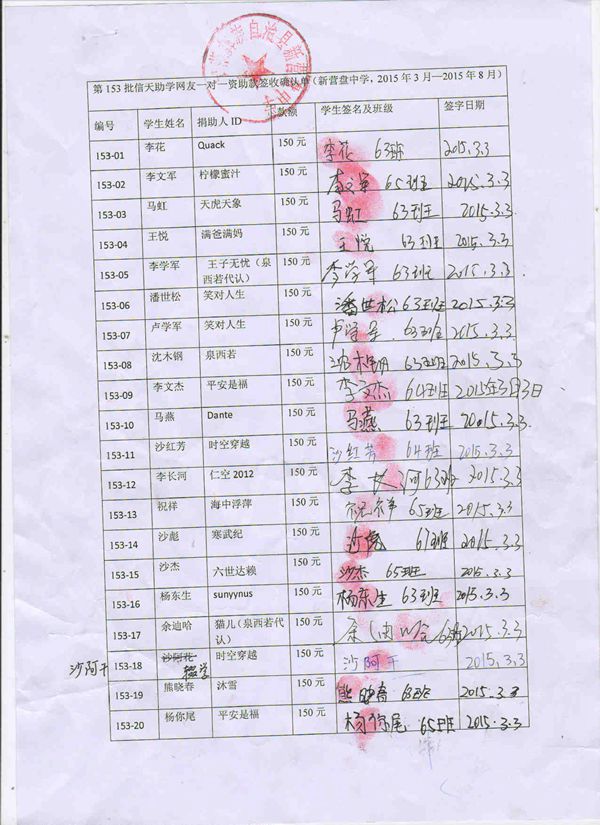 族自治县新营盘中学
第 153 批信天助学网友一对一资助款签收确认单(新营盘中学，2015 年 3 月—2015 年 8 月)
编号 学生姓名 捐助人 ID 款额 学生签名及班级 签字日期
153-01 李花 Quack 150 元 李花 63班 2015.3.3
153-02 李文军 柠檬蜜汁 150 元 李文军 65班 2015.3.3
153-03 马虹 天虎天象 150 元 马虹 63班 2015.3.3
153-04 王悦 满爸满妈 150 元 王悦 63班 2015.3.3
153-05 李学军 王子无忧（泉西若代认） 150 元 李学军 63班 2015.3.3
153-06 潘世松 笑对人生 150 元 潘世松 63班 2015.3.3
153-07 卢学军 笑对人生 150 元 卢学军 63班 2015.3.3
153-08 沈木钢 泉西若 150 元 沈木钢 63班 2015.3.3
153-09 李文杰 平安是福 150 元 李文杰 64班 2015年3月3日
153-10 马燕 Dante 150 元 马燕 63班 2015.3.3
153-11 沙红芳 时空穿越 150 元 沙红芳 64班 2015.3.3
153-12 李长河 仁空 2012 150 元 李长河 63班 2015.3.3
153-13 祝祥 海中浮萍 150 元 祝祥 65班 2015.3.3
153-14 沙彪 寒武纪 150 元 沙彪 61班 2015.3.3
153-15 沙杰 六世达赖 150 元 沙杰 65班 2015.3.3
153-16 杨东生 sunyynus 150 元 杨东生 63班 2015.3.3
153-17 余迪哈 猫儿（泉西若代认） 150 元 余迪哈 63班 2015.3.3
沙阿干 153-18 沙阿花 辍学 时空穿越 150 元 沙阿干 2015.3.3
153-19 熊晓春 沐雪 150 元 熊晓春 63班 2015.3.3
153-20 杨你尾 平安是福 150 元 杨你尾 65班 2015.3.3